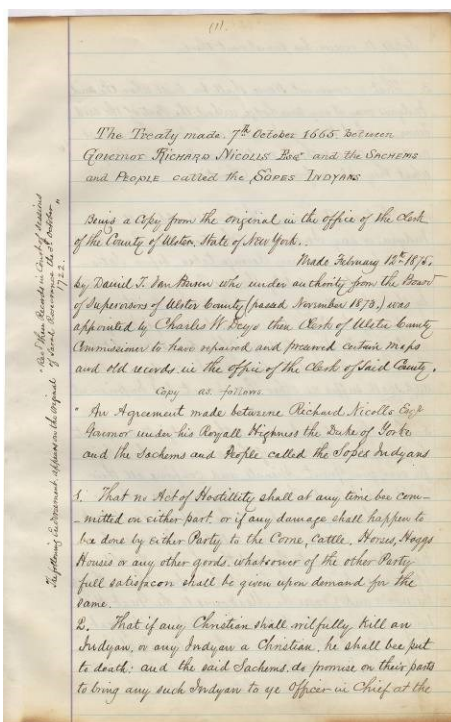 (1).
The Treaty made 7th October 1665 between
Governor Richard Nicolls Esqr and the Sachems
and People called the Sopes Indyans
Being a Copy from the original in the office of the Clerk
of the County of Ulster, State of New York.
Made February 12th 1875.
by Daniel T. Van Buren who under authority from the Board
of Supervisors of Ulster County (passed November 1873.) was
appointed by Charles W. Deyo then Clerk of Ulster County
Commissioner to have repaired and preserved certain maps
and old records in the office of the Clerk of Said County.
Copy as follows.
" An Agreement made betweene Richard Nicolls Esqr
Governor under his Royall Highness the Duke of Yorke
and the Sachems and People called the Sopes Indyans
1. That no Act of Hostillity shall at any time bee com-
-mitted on either part, or if any damage shall happen to
bee done by either Party to the Corne, Cattle, Horses, Hoggs
Houses or any other goods whatsoever of the other Party
full satisfacon shall be given upon demand for the
same.
2. That if any Christian shall wilfully kill an
Indyan, or any Indyan a Christian, he shall bee put
to death; and the said Sachems do promise on their parts
to bring any such Indyan to ye Officer in Chief at the
The following Endorsement appears on the Original
of
October
1722.